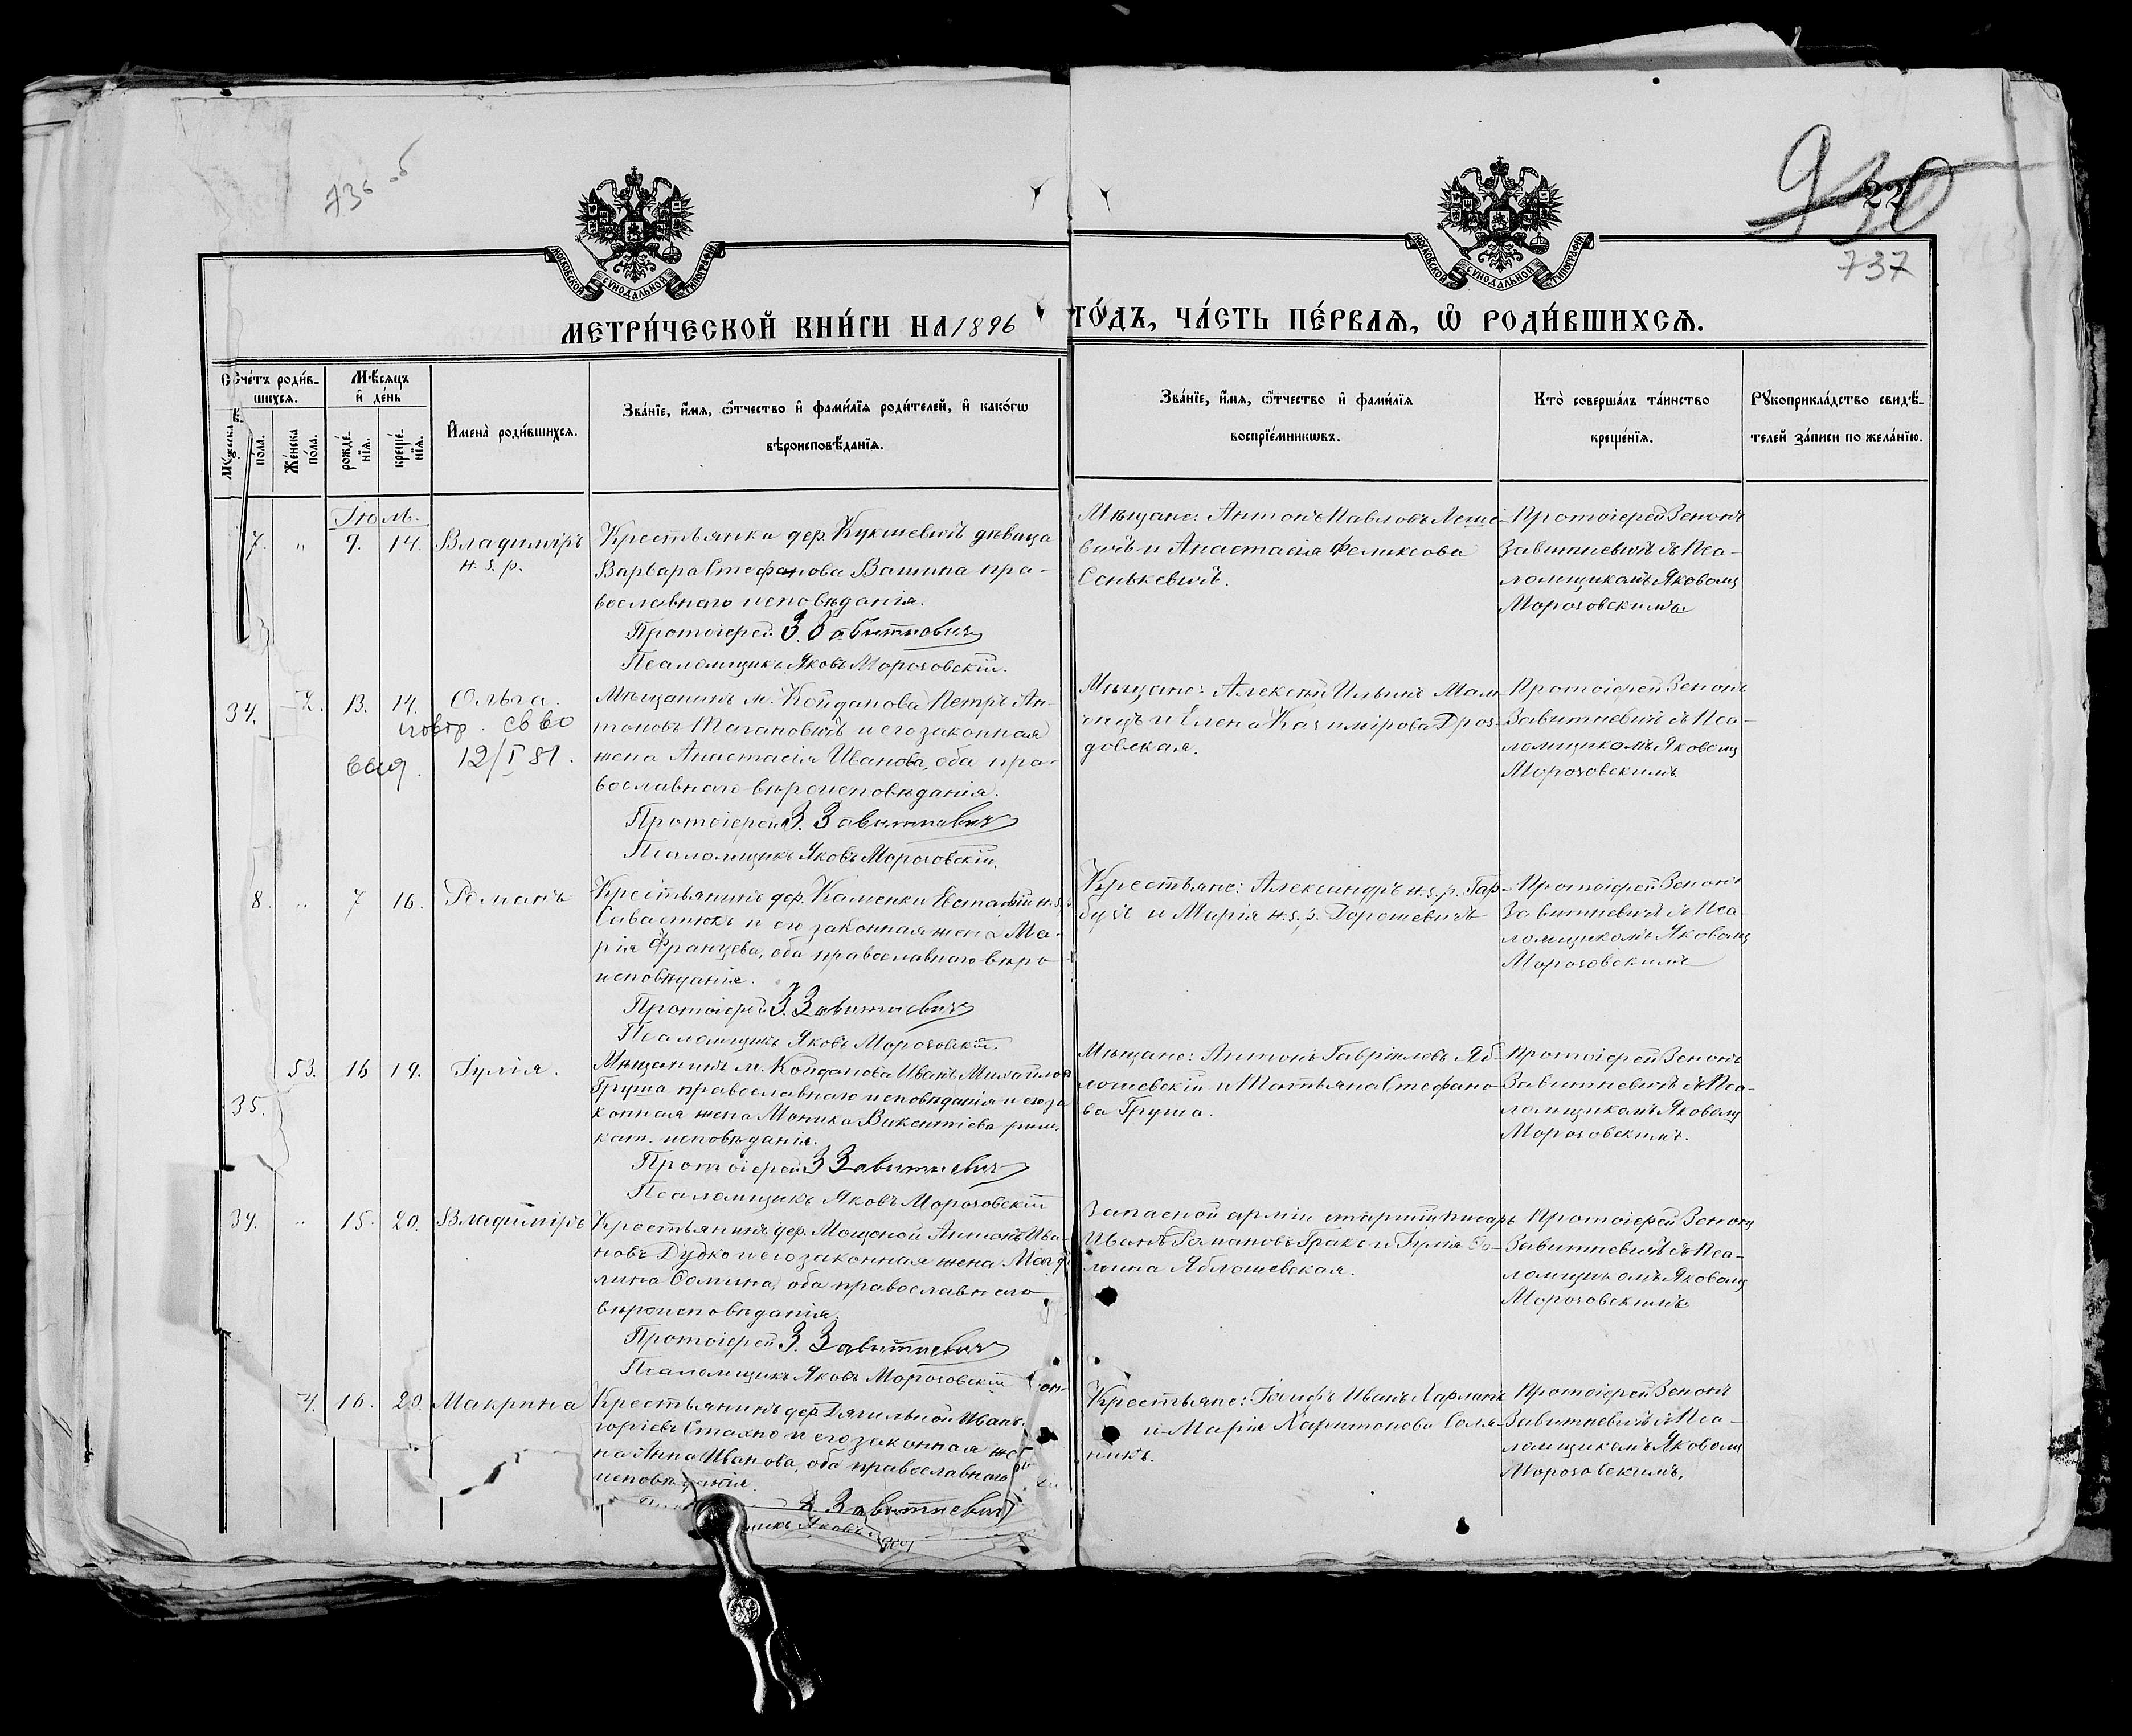 736 об
22
930
737
МОСКОВСКОЙ СѴНОДАЛЬНОЙ ТИПОГРАФІИ
МОСКОВСКОЙ СѴНОДАЛЬНОЙ ТИПОГРАФІИ
МЕТРИ́ЧЕСКОЙ КНИ́ГИ НА 1896 ГО́ДЪ, ЧА́СТЬ ПЕ́РВАЯ, Ѡ РОДИ́ВШИХСЯ.
Счетъ роди́в-
шихся.
Мѣ́сяцъ
и де́нь
Му́жеска по́ла.
Же́нска по́ла.
рожде́-
нїя.
креще́-
нїя.
Имена̀ роди́вшихся.
Зва́нїе, и́мя, ѻ́тчество и фами́лїя роди́телей, и како́гѡ
вѣроисповѣ́данїя.
Зва́нїе, и́мя, ѻ́тчество и фами́лїя
воспрїе́мникѡвъ.
Кто̀ соверша́лъ та́инство
креще́нїя.
Рꙋкоприкла́дство свидѣ́-
телей за́писи по жела́нїю.
Іюль.
7. „ 9. 14. Владиміръ
н. з. р.
Крестьянка дер. Кукшевичъ дѣвица
Варвара Стефанова Вашина пра-
вославнаго исповѣданія.
Протоіерей З. Завитневичъ
Псаломщикъ Яковъ Морозовскій.
Мѣщане: Антонъ Павловъ Леше-
вичъ и Анастасія Феликсова
Сенькевичъ.
Протоіерей Зенонъ
Завитневичъ съ Пса-
ломщикомъ Яковомъ
Морозовскимъ
34. 2. 13. 14. Ольга.
повтор. св во
выд. 12/I 51.
Мѣщанинъ м. Койданова Петръ Ан-
тоновъ Тагановичъ и его законная
жена Анастасія Иванова, оба пра-
вославнаго вѣроисповѣданія.
Протоіерей З. Завитневичъ
Псаломщикъ Яковъ Морозовскій.
Мѣщане: Алексѣй Ильинъ Мам-
чицъ и Елена Казимірова Дроз-
довская.
Протоіерей Зенонъ
Завитневичъ съ Пса-
ломщикомъ Яковомъ
Морозовскимъ
8. „ 7 16. Романъ
Крестьянинъ дер. Каменки Евстафій н. з.
Савастюкъ и его законная жена Ма-
рія Францева, оба православнаго вѣро-
исповѣданія.
Протоіерей З. Завитневичъ
Псаломщикъ Яковъ Морозовскій.
Крестьяне: Александръ н. з. р. Гар-
бузъ и Марія н. з. Дорошевичъ
Протоіерей Зенонъ
Завитневичъ съ Пса-
ломщикомъ Яковомъ
Морозовскимъ
35. 53. 16 19. Іулія.
Мѣщанинъ м. Койданова Иванъ Михайловъ
Груша православнаго исповѣданія и его за-
конная жена Моника Викентіева рим.
кат. исповѣданія.
Протоіерей З Завитневичъ
Псаломщикъ Яковъ Морозовскій
Мѣщане: Антонъ Гавріиловъ Яб-
лошевскій и Татьяна Стефано-
ва Груша.
Протоіерей Зенонъ
Завитневичъ съ Пса-
ломщикомъ Яковомъ
Морозовскимъ.
39. „ 15. 20. Владиміръ
Крестьянинъ дер. Мощеной Антонъ Ива-
новъ Дудко и его законная жена Магда-
лина Ѳомина, оба православнаго
вѣроисповѣданія.
Протоіерей З. Завитневичъ
Псаломщикъ Яковъ Морозовскій
Запасной арміи старшій писарь
Иванъ Романовъ Гракъ и Іулія Ѳо-
мина Яблошевская.
Протоіерей Зенонъ
Завитневичъ съ Пса-
ломщикомъ Яковомъ
Морозовскимъ
4. 16. 20. Макрина
Крестьянинъ дер. Дягильной Иванъ
горіевъ Стахно и его законная же-
на Анна Иванова, оба православнаго
исповѣданія.
З. Завитневичъ
щикъ Яковъ
Крестьяне: Іосифъ Иванъ Харланъ
и Марія Харитонова Соля-
никъ.
Протоіерей Зенонъ
Завитневичъ съ Пса-
ломщикомъ Яковомъ
Морозовскимъ.